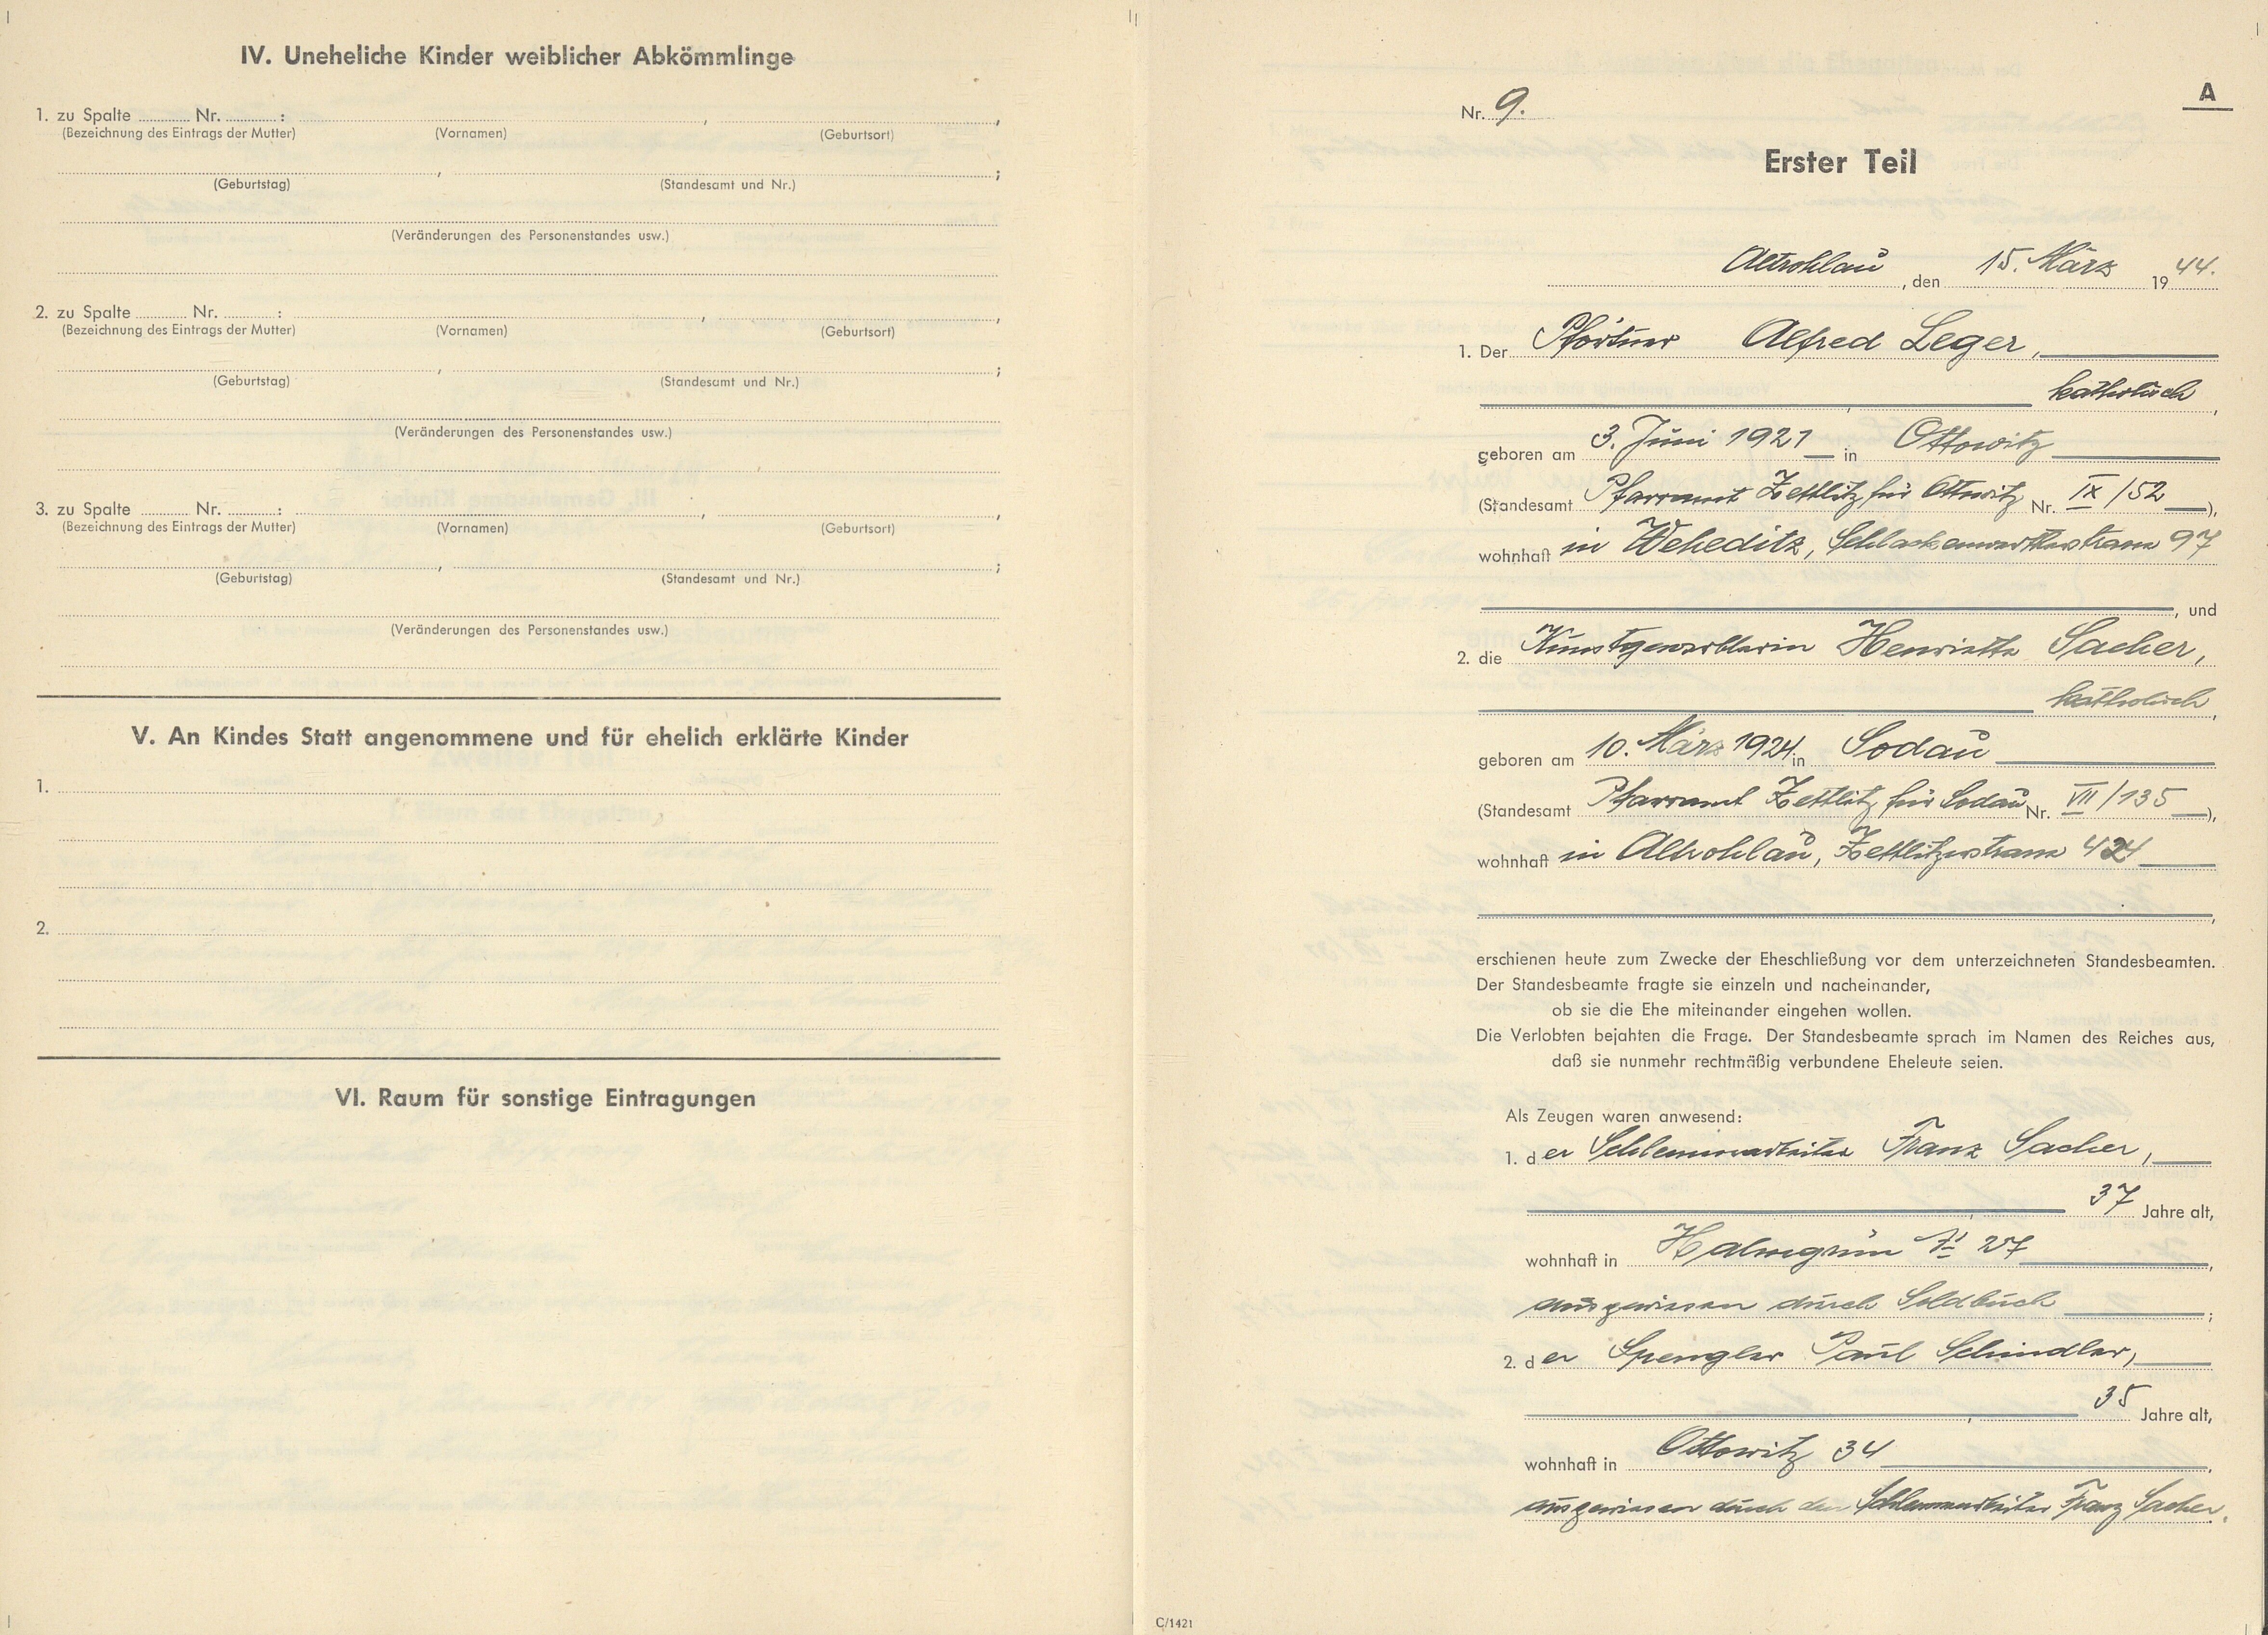 IV. Uneheliche Kinder weiblicher Abkömmlinge
1. zu Spalte ........ Nr. ........ :
(Bezeichnung des Eintrags der Mutter) (Vornamen) (Geburtsort)
(Geburtstag) (Standesamt und Nr.)
(Veränderungen des Personenstandes usw.)
2. zu Spalte ........ Nr. ........ :
(Bezeichnung des Eintrags der Mutter) (Vornamen) (Geburtsort)
(Geburtstag) (Standesamt und Nr.)
(Veränderungen des Personenstandes usw.)
3. zu Spalte ........ Nr. ........ :
(Bezeichnung des Eintrags der Mutter) (Vornamen) (Geburtsort)
(Geburtstag) (Standesamt und Nr.)
(Veränderungen des Personenstandes usw.)
V. An Kindes Statt angenommene und für ehelich erklärte Kinder
1.
2.
VI. Raum für sonstige Eintragungen
A
Nr. 9.
Erster Teil
Altrohlau, den 15. März 1944.
1. Der Pförtner Alfred Leger,
katholisch,
geboren am 3. Juni 1921 in Ottowitz
(Standesamt Pfarramt Zettlitz für Ottowitz Nr. IX/52),
wohnhaft in Weheditz, Schlackenwertherstrasse 97
, und
2. die Kunstgewerblerin Henriette Sacher,
katholisch,
geboren am 10. März 1924 in Sodau
(Standesamt Pfarramt Zettlitz für Sodau Nr. VII/135),
wohnhaft in Altrohlau, Zettlitzerstrasse 424
erschienen heute zum Zwecke der Eheschließung vor dem unterzeichneten Standesbeamten.
Der Standesbeamte fragte sie einzeln und nacheinander,
ob sie die Ehe miteinander eingehen wollen.
Die Verlobten bejahten die Frage. Der Standesbeamte sprach im Namen des Reiches aus,
daß sie nunmehr rechtmäßig verbundene Eheleute seien.
Als Zeugen waren anwesend:
1. der Schlemmarbeiter Franz Sacher,
37 Jahre alt,
wohnhaft in Halmgrün No 27,
ausgewiesen durch Soldbuch;
2. der Spengler Paul Schindler,
35 Jahre alt,
wohnhaft in Ottowitz 34,
ausgewiesen durch den Schlemmarbeiter Franz Sacher.
C/1421